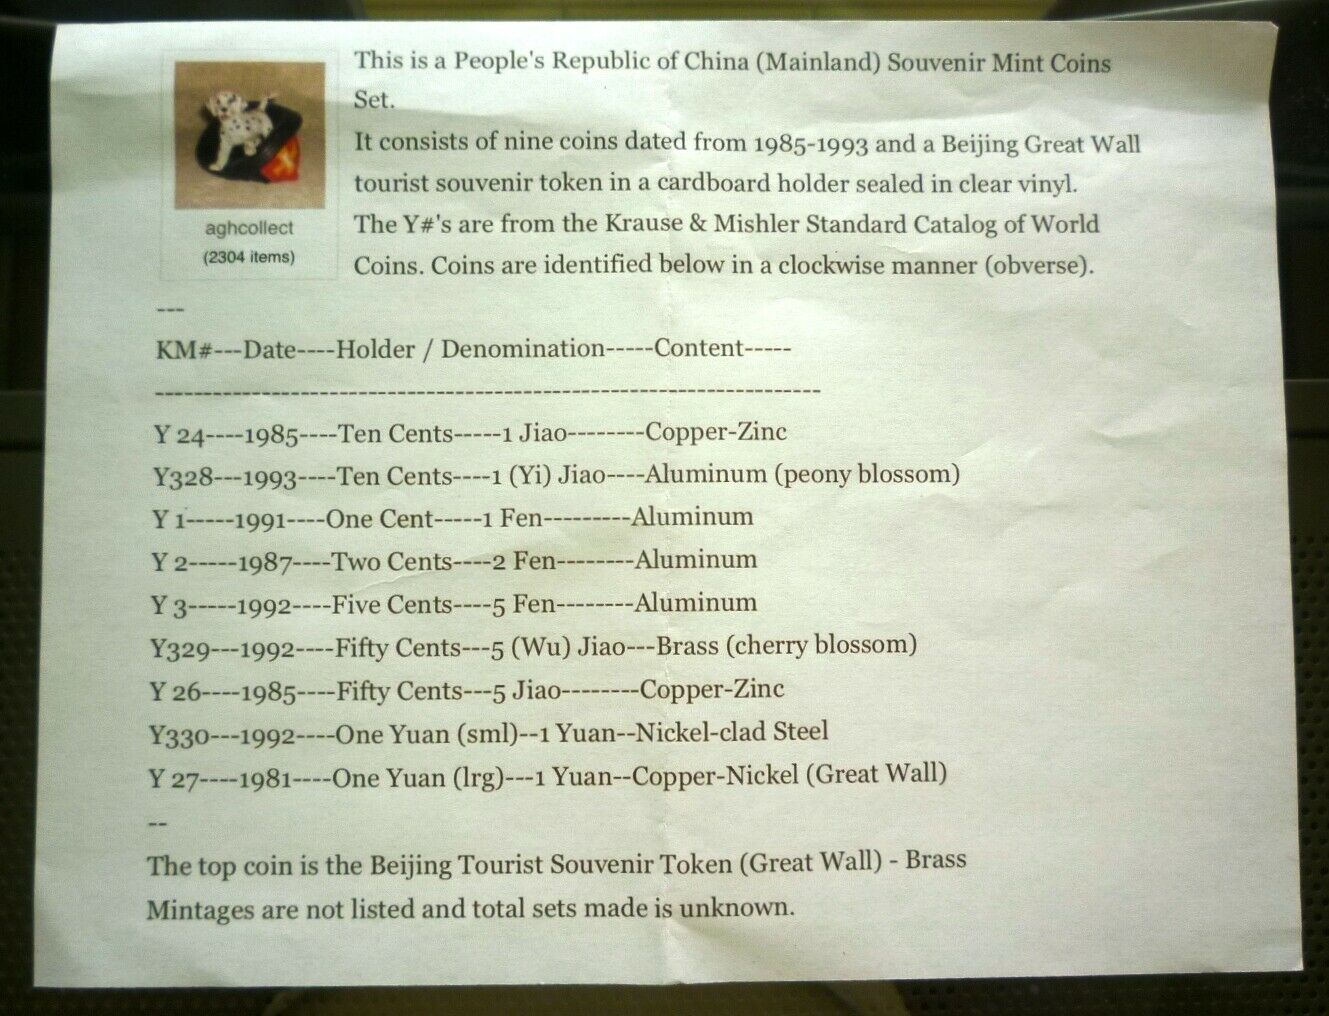 This is a People's Republic of China (Mainland) Souvenir Mint Coins
Set.
It consists of nine coins dated from 1985-1993 and a Beijing Great Wall
tourist souvenir token in a cardboard holder sealed in clear vinyl.
The Y#'s are from the Krause & Mishler Standard Catalog of World
Coins. Coins are identified below in a clockwise manner (obverse).
aghcollect
(2304 items)
---
KM#---Date----Holder / Denomination-----Content-----
----------------------------------------------------------------------
Y 24----1985----Ten Cents-----1 Jiao--------Copper-Zinc
Y328---1993----Ten Cents----1 (Yi) Jiao----Aluminum (peony blossom)
Y 1-----1991----One Cent-----1 Fen---------Aluminum
Y 2-----1987----Two Cents----2 Fen--------Aluminum
Y 3-----1992----Five Cents----5 Fen--------Aluminum
Y329---1992----Fifty Cents---5 (Wu) Jiao---Brass (cherry blossom)
Y 26----1985----Fifty Cents---5 Jiao--------Copper-Zinc
Y330---1992----One Yuan (sml)--1 Yuan--Nickel-clad Steel
Y 27----1981----One Yuan (lrg)---1 Yuan--Copper-Nickel (Great Wall)
--
The top coin is the Beijing Tourist Souvenir Token (Great Wall) - Brass
Mintages are not listed and total sets made is unknown.